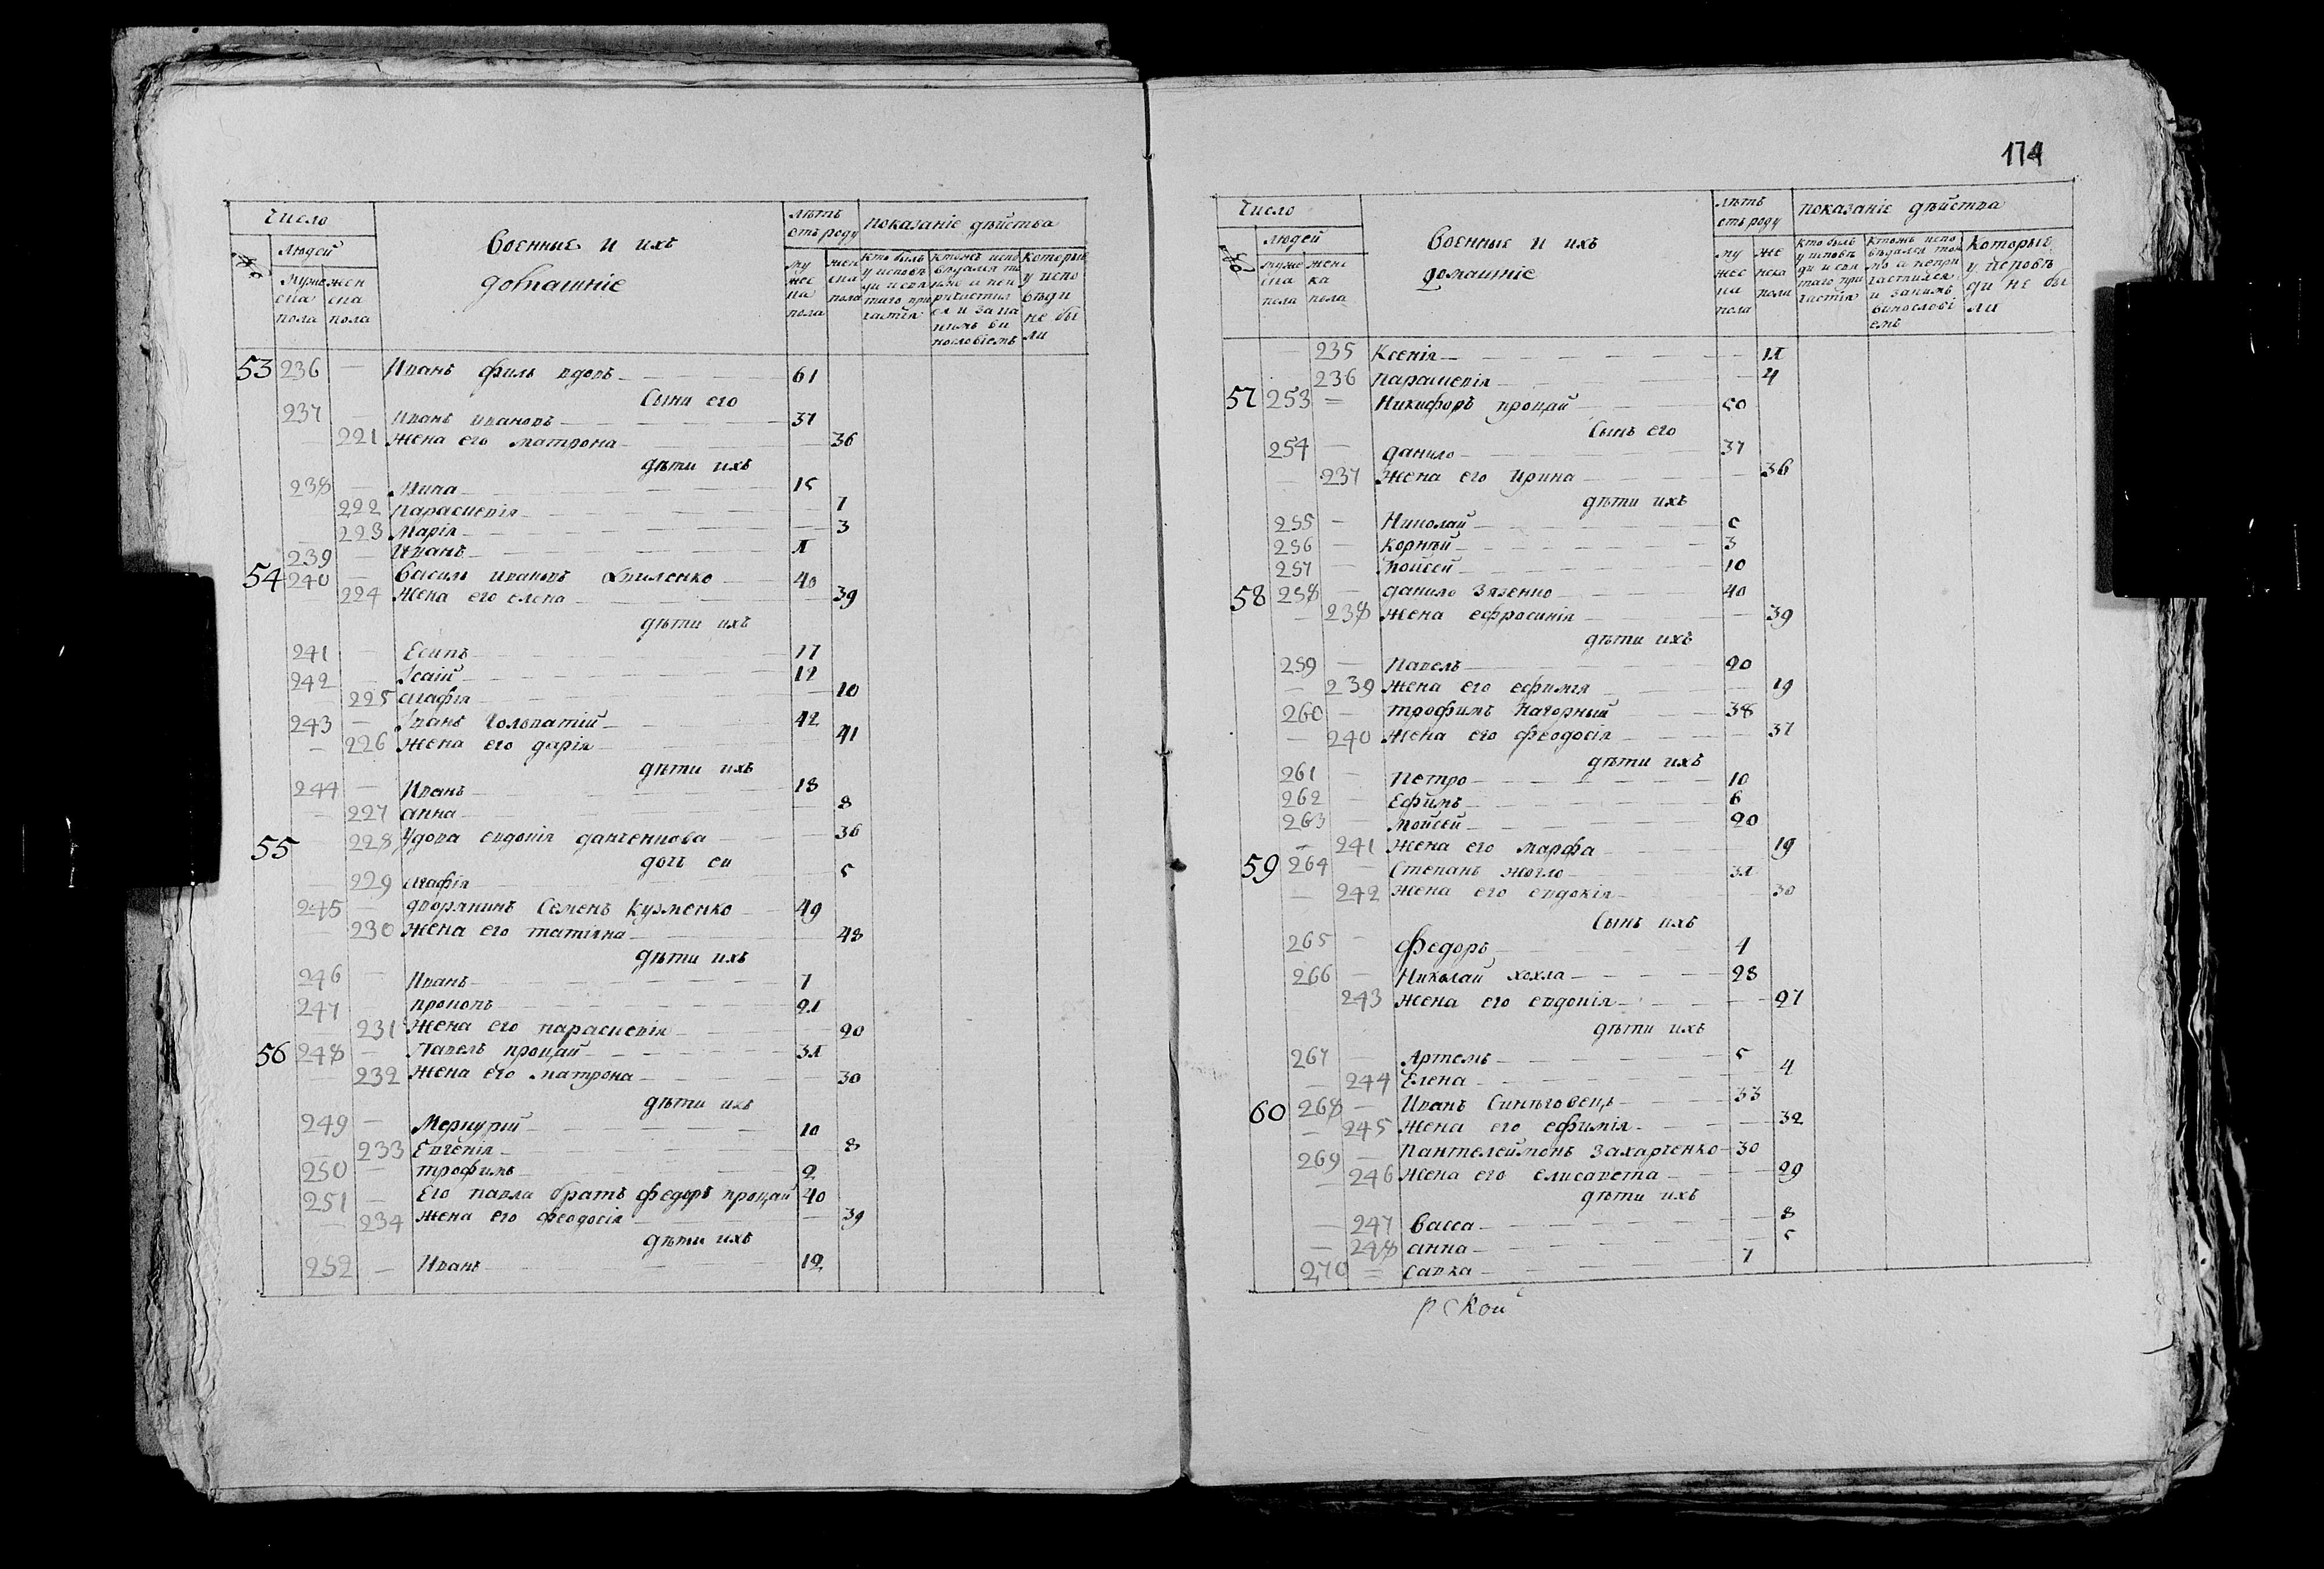 174
Число
Людей
Мужеска пола
женска пола
Военние и ихъ домашніе
лѣтъ отъ роду
мужеска пола
женска пола
показаніе дѣйства
кто былъ у исповѣди и святаго причастія
Которые у исповѣди не были
53 236 — Иванъ филь вдовъ 61
Сыни его
237 — Иванъ ивановъ 37
— 221 Жена его матрона — 36
дѣти ихъ
238 — 15
222 Параскевія — 7
223 Марія — 3
239 — Иванъ 1
54 240 — Василь ивановъ 40
224 Жена его елена 39
дѣти ихъ
241 — Есипъ 17
242 — Ісаій 12
— 225 агафія — 10
243 — Іванъ 42
— 226 Жена его дарія 41
дѣти ихъ
244 — Иванъ 18
— 227 анна — 8
55 — 228 Удова евдокія данченкова — 36
доч еи
— 229 агафія — 5
245 — дворянинъ Семенъ Кузменко 49
— 230 Жена его татіяна — 48
дѣти ихъ
246 — Иванъ 7
247 — прокопъ 21
231 Жена его параскевія — 20
56 248 — Павелъ процай 31
— 232 Жена его матрона — 30
дѣти ихъ
249 — Меркурій 10
— 233 Евгенія — 8
250 — трофимъ 2
251 — Его павла братъ федоръ процай 40
— 234 Жена его феодосія — 39
дѣти ихъ
252 — Иванъ 12
Число
Людей
мужеска пола
женска пола
Военные и ихъ домашніе
лѣтъ отъ роду
мужеска пола
женска пола
показаніе дѣйства
кто былъ у исповѣди и святаго причастія
Ктожъ исповѣдался токмо а непричастился и закимъ винословіемъ
Которые у исповѣди не были
— 235 Ксенія — 11
236 параскевія — 4
57 253 — Никифоръ процай 50
Сынъ его
254 — данило 37
— 237 Жена его Ирина — 36
дѣти ихъ
255 — Николай 5
256 — Корнѣй 3
257 — Мойсей 10
58 258 — данило Зязенко 40
— 238 Жена ефросинія — 39
дѣти ихъ
259 — Павелъ 20
— 239 Жена его ефимія — 19
260 — трофимъ Нагорный 38
— 240 Жена его феодосія — 37
дѣти ихъ
261 — Петро 10
262 — Ефимъ 6
263 — Мойсей 20
— 241 Жена его марфа 19
59 264 — Степанъ жогло 31
— 242 Жена его евдокія — 30
Сынъ ихъ
265 — Федоръ 4
266 — Николай хохла 28
243 Жена его евдокія — 27
дѣти ихъ
267 — Артемъ 5
— 244 Елена 4
60 268 — Иванъ Синѣговецъ 33
— 245 Жена его ефимія — 32
269 — Пантелеймонъ Захарченко 30
— 246 Жена его елисавета — 29
дѣти ихъ
— 247 Васса — 8
— 248 анна — 5
270 — Савка 7